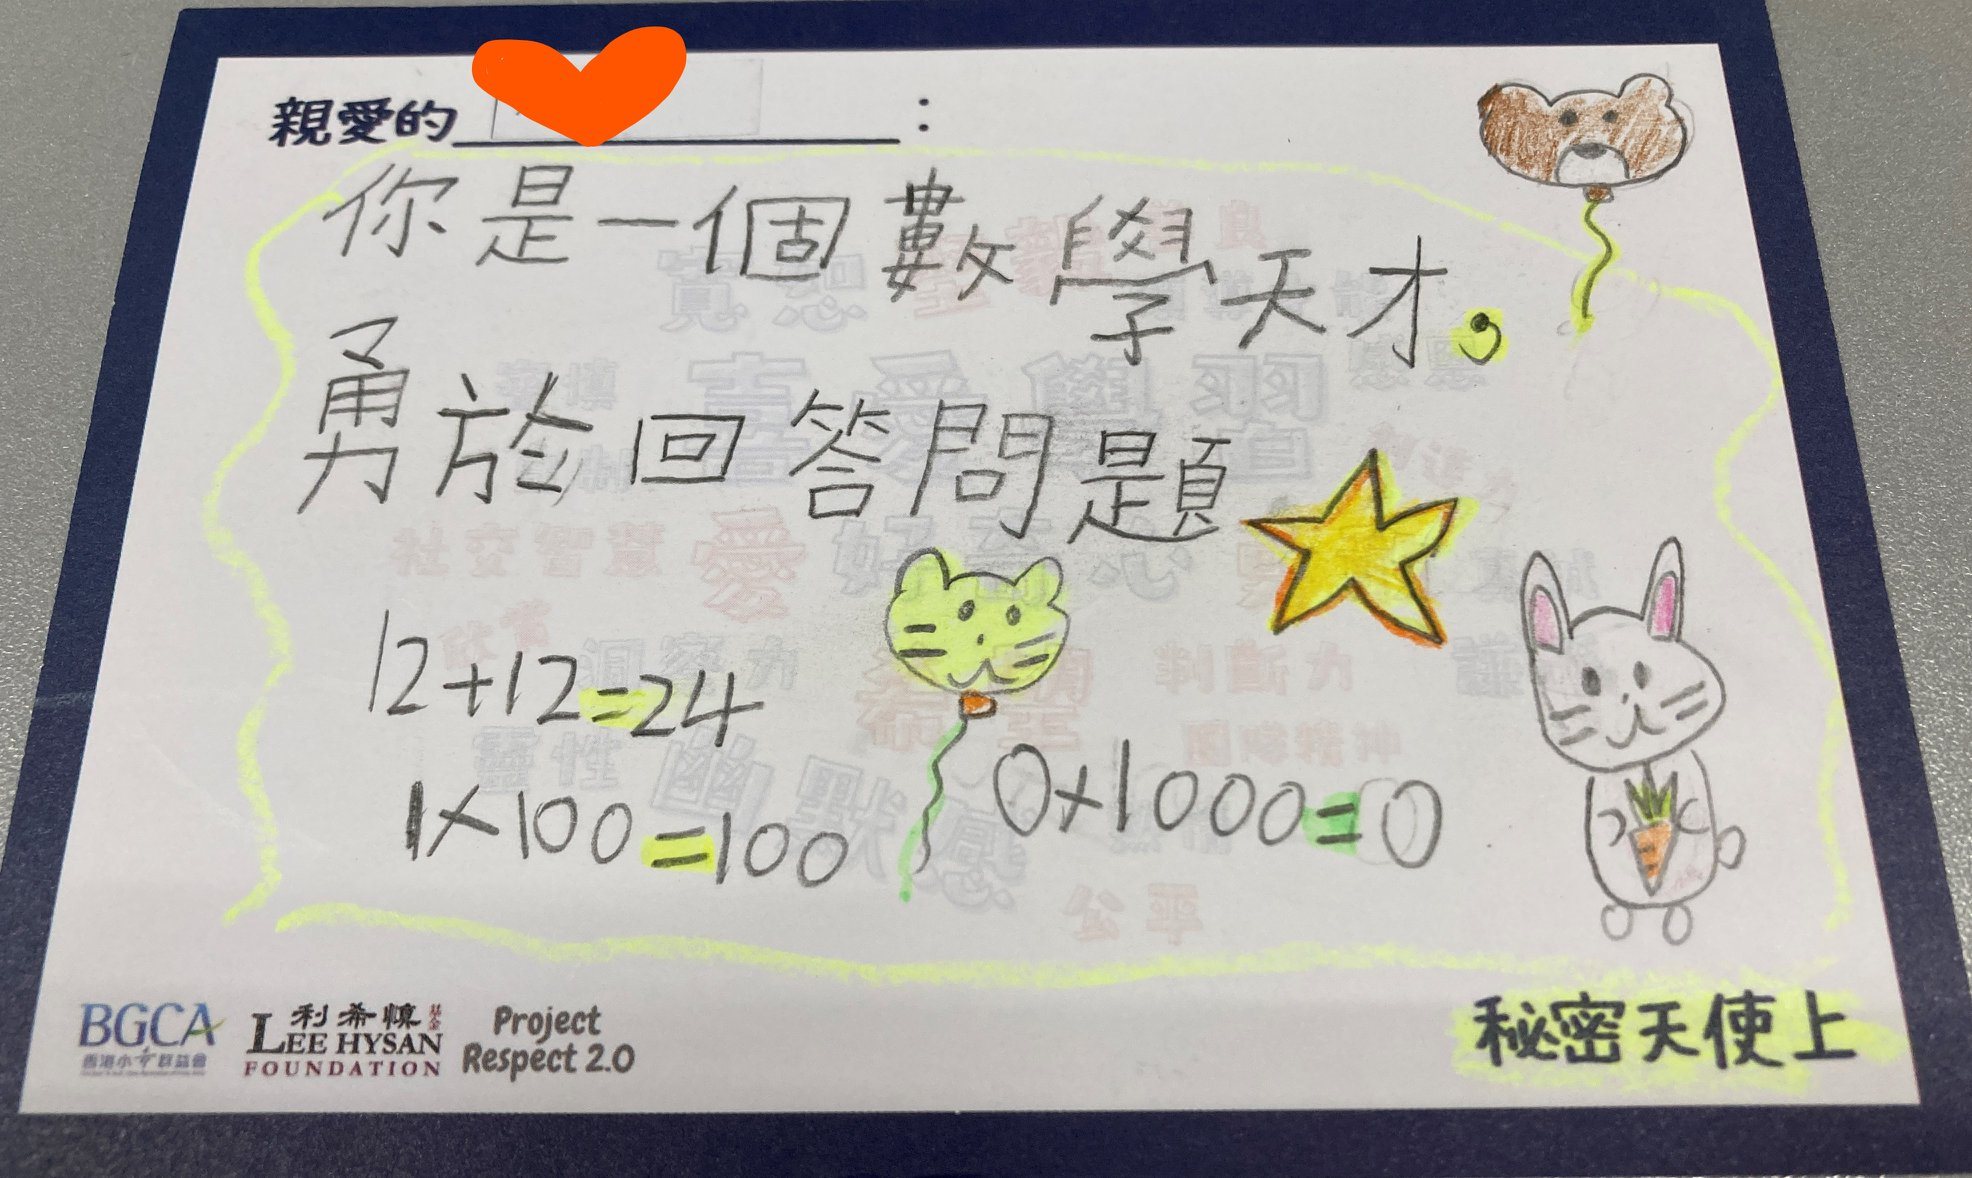 親愛的：
你是一個數學天才，
勇於回答問題
12+12=24
1×100=100
0×1000=0
秘密天使上
BGCA
香港小童群益會
利希慎基金
LEE HYSAN
FOUNDATION
Project
Respect 2.0
寬恕
喜愛學習
社交智慧
愛
好奇心
洞察力
希望
判斷力
靈性
幽默感
團隊精神
公平